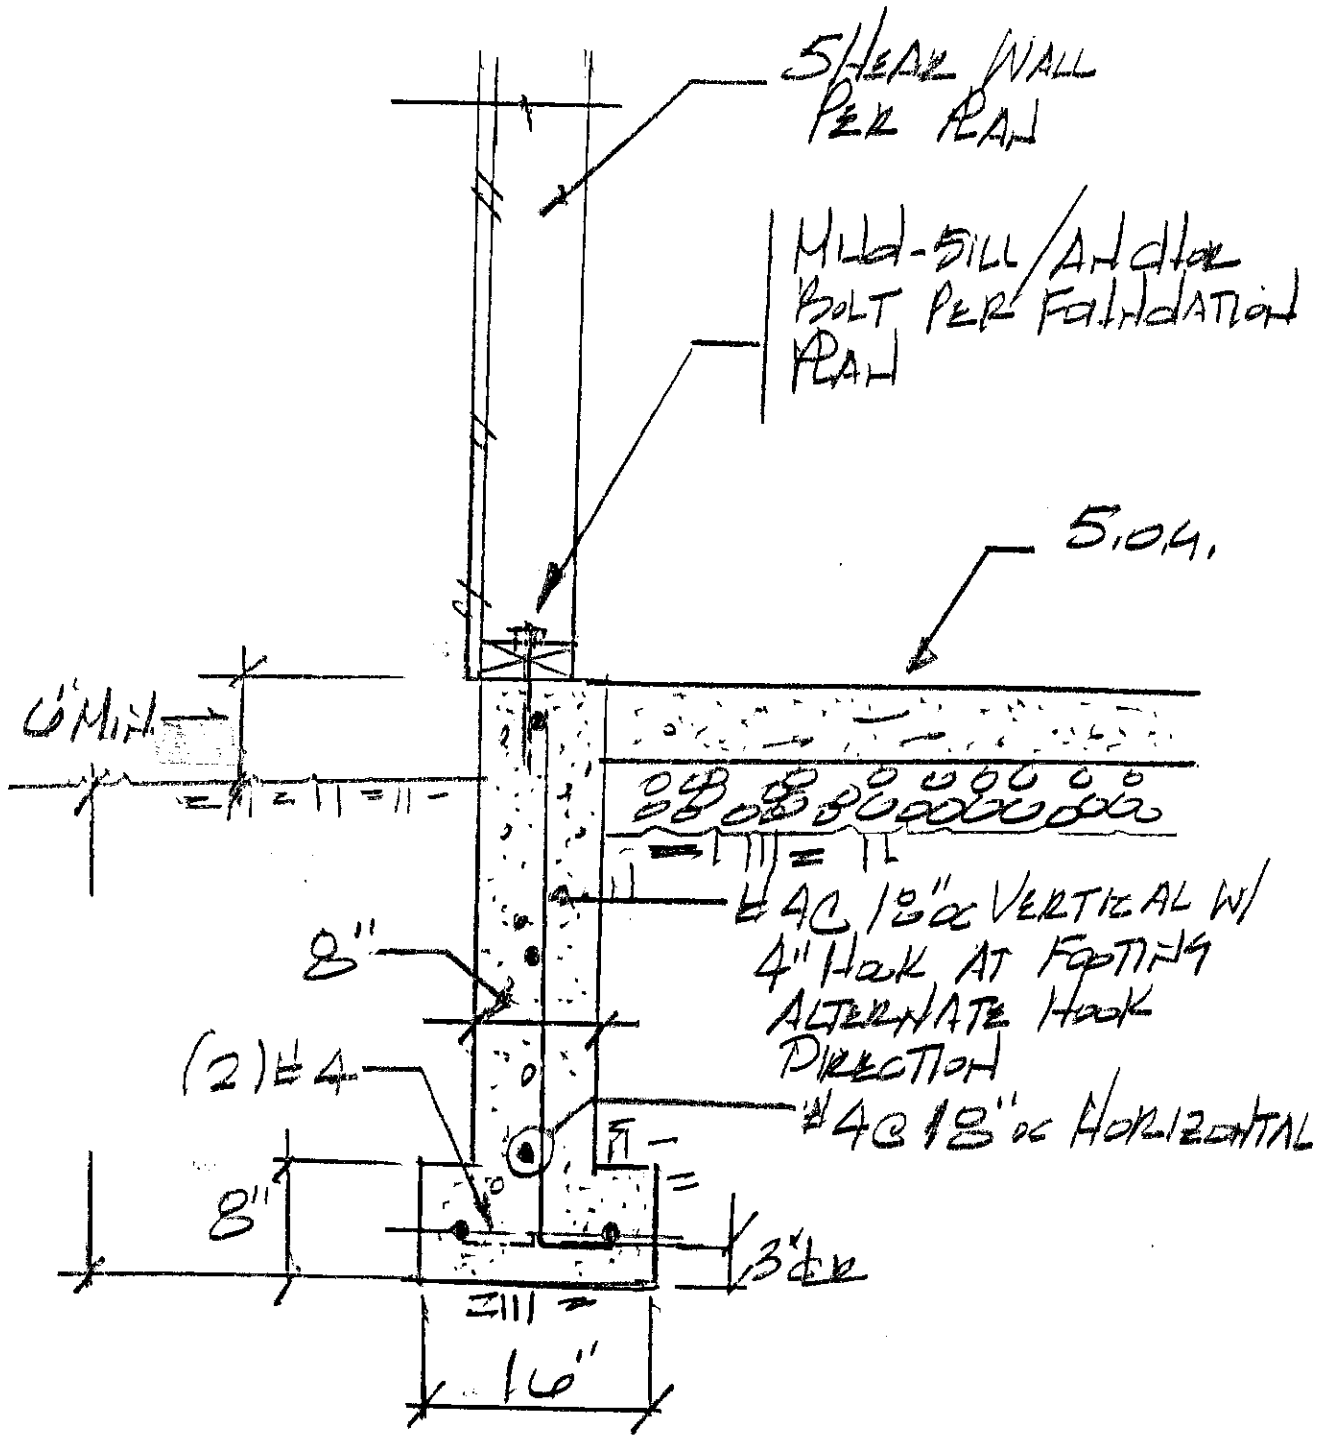 SHEAR WALL
PER PLAN
MUD-SILL/ANCHOR
BOLT PER FOUNDATION
PLAN
S.O.G.
6" MIN.
#4@18"oc VERTICAL W/
4" HOOK AT FOOTING
ALTERNATE HOOK
DIRECTION
8"
(2)#4
#4@18"oc HORIZONTAL
8"
3" CLR
16"